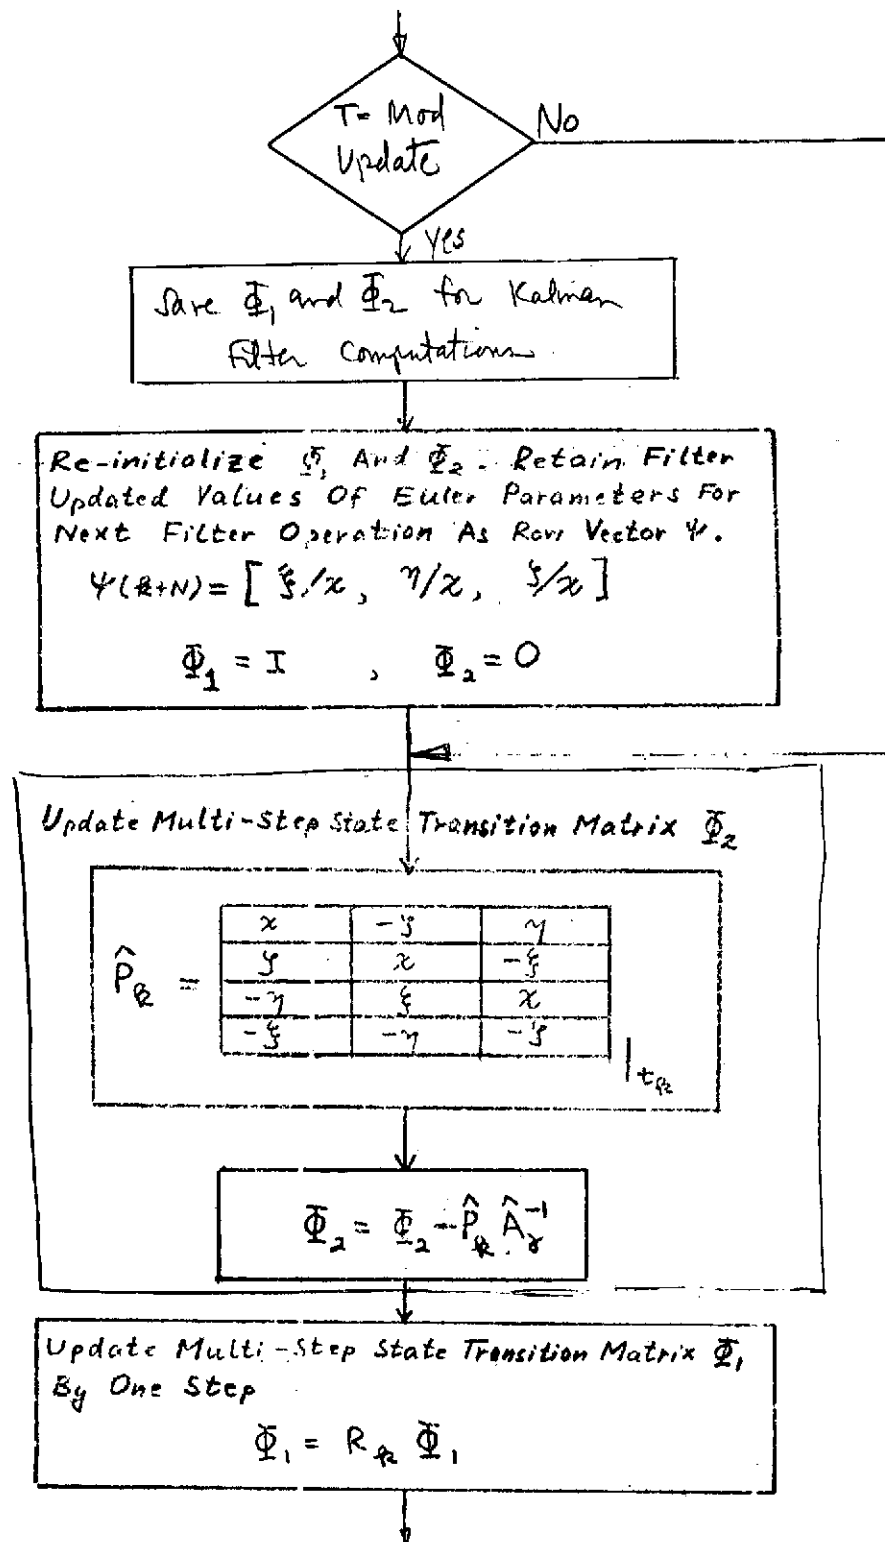 T= Mod
Update
No
Yes
Save Φ₁ and Φ₂ for Kalman
Filter Computations
Re-initialize Φ₁ And Φ₂. Retain Filter
Updated Values Of Euler Parameters For
Next Filter Operation As Row Vector Ψ.
Ψ(k+N) = [ ξ/χ, η/χ, ζ/χ ]
Φ₁ = I , Φ₂ = O
Update Multi-Step State Transition Matrix Φ₂
P̂ₖ =
χ -ζ η
ζ χ -ξ
-η ξ χ
-ξ -η -ζ
|tₖ
Φ₂ = Φ₂ - P̂ₖ Âᵧ⁻¹
Update Multi-Step State Transition Matrix Φ₁
By One Step
Φ₁ = Rₖ Φ₁